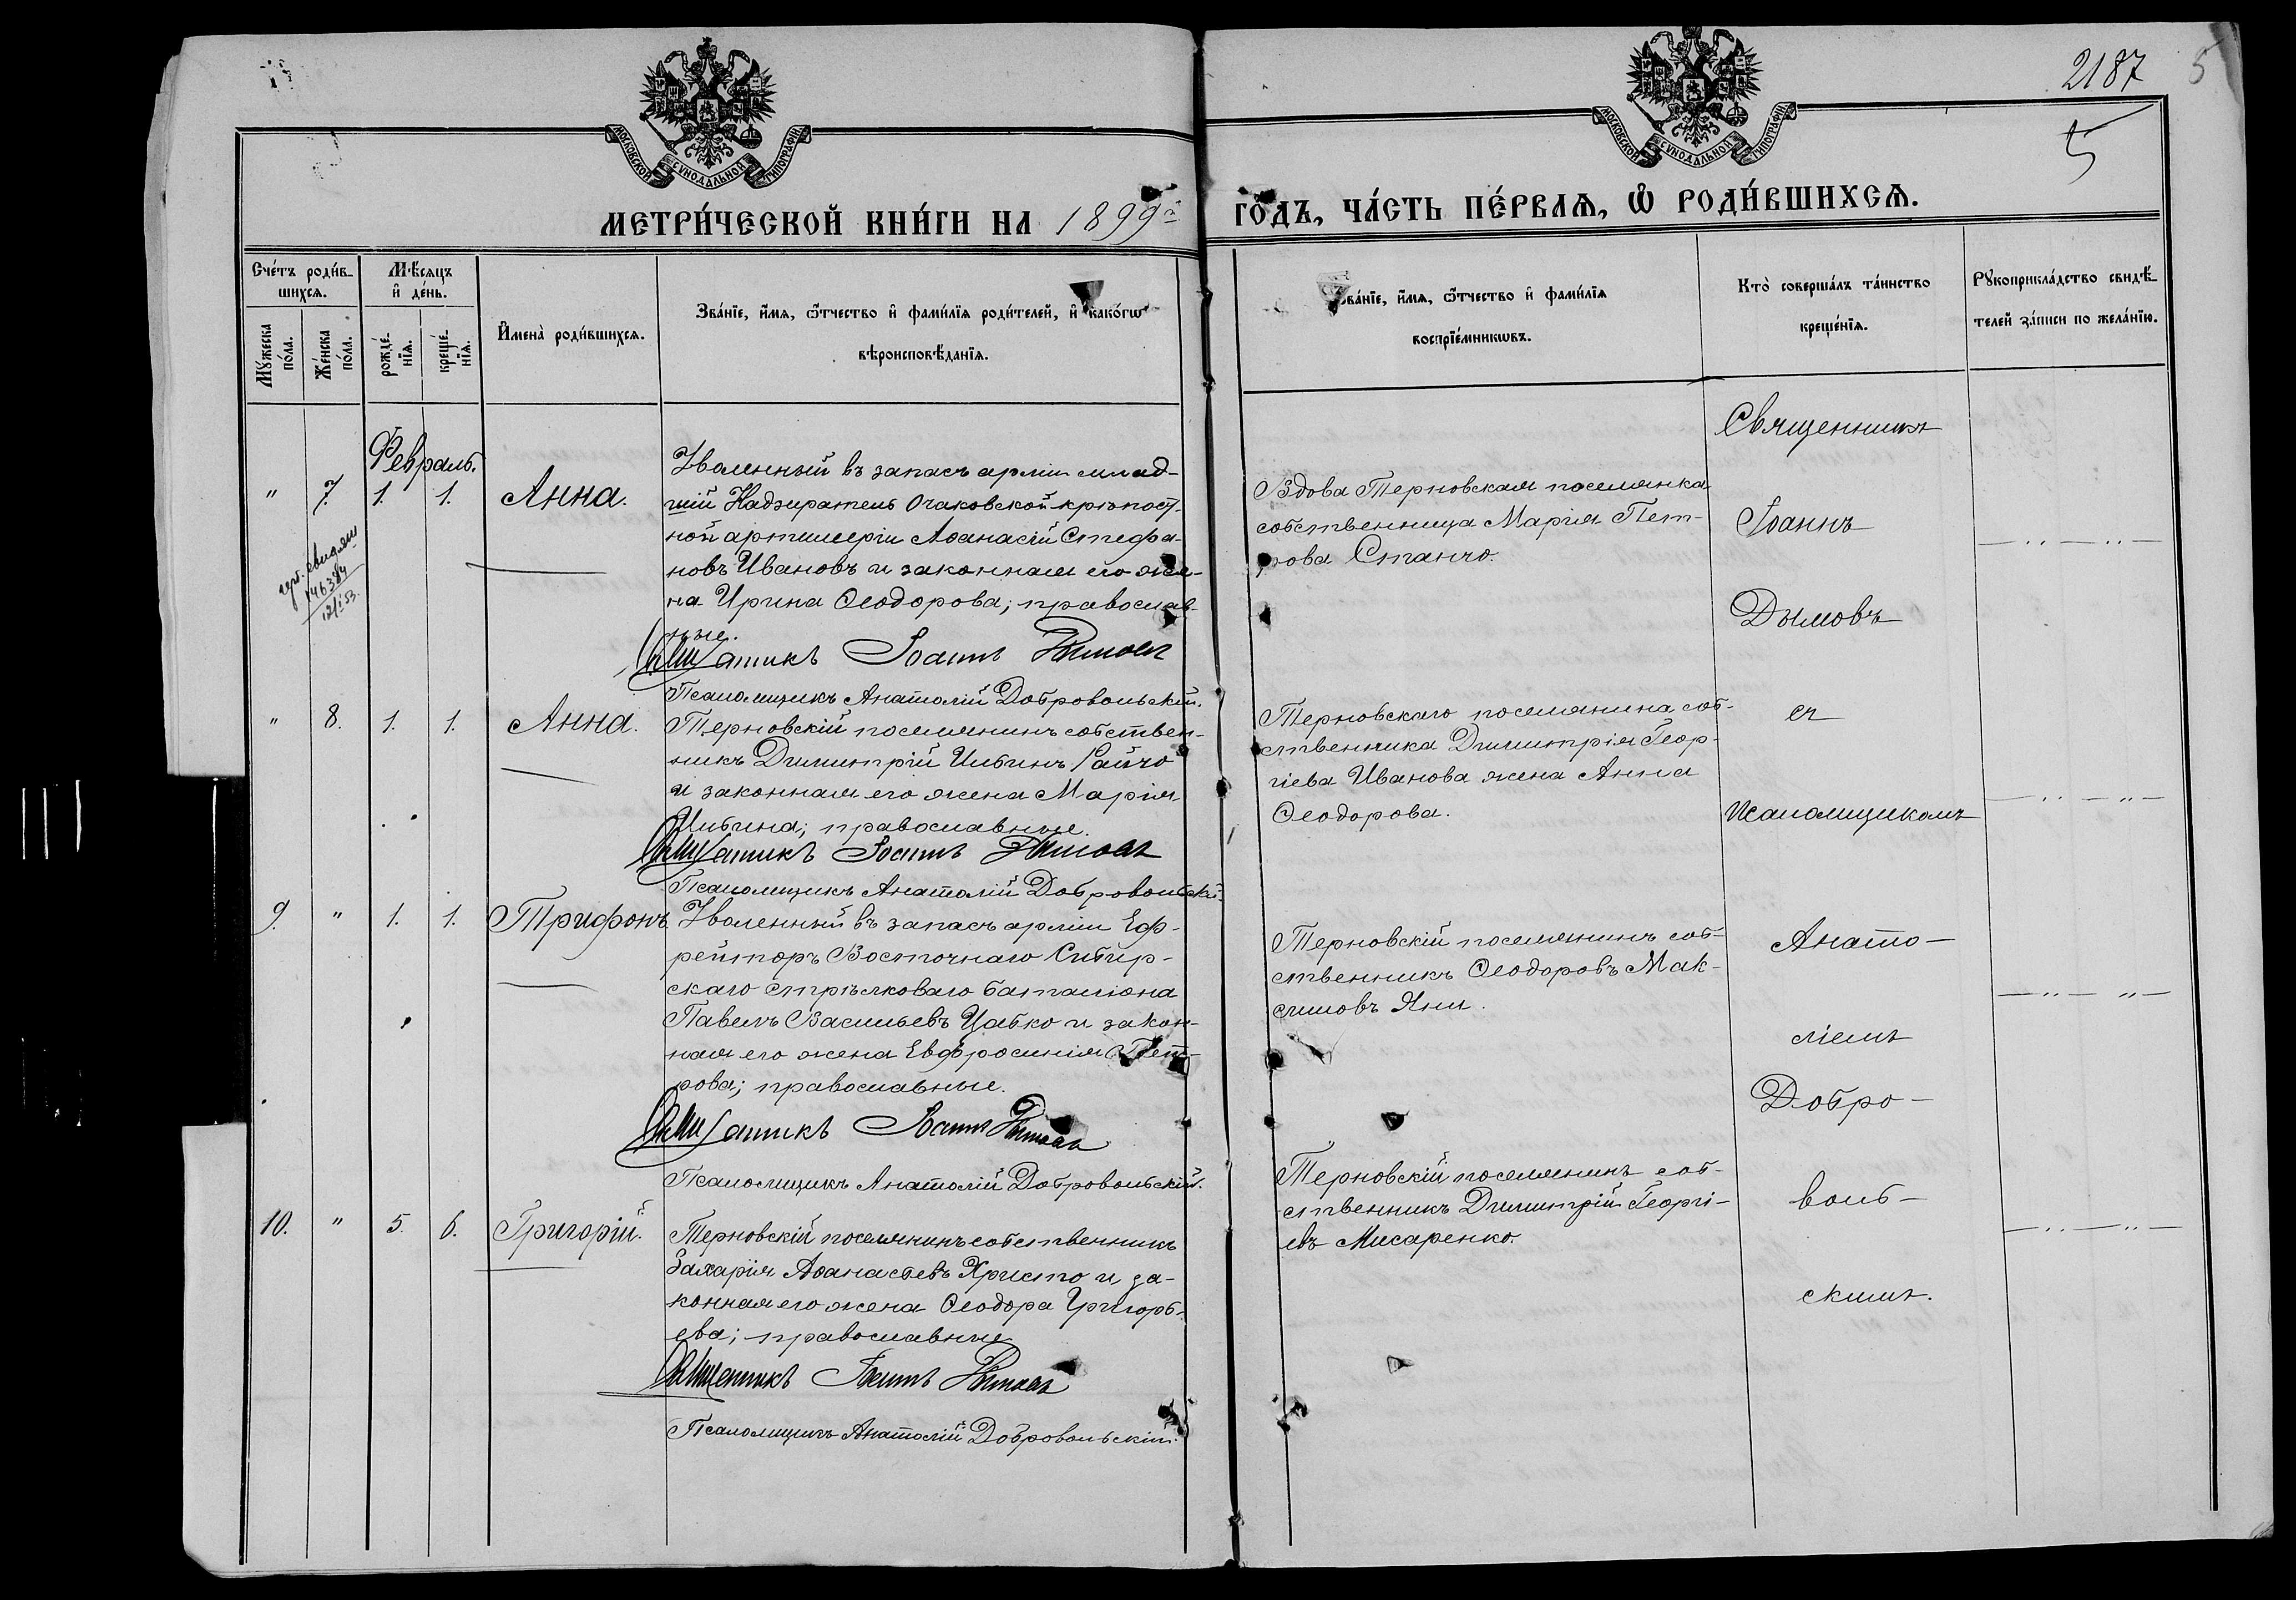 2187 5
5
МОСКОВСКОЙ СѴНОДАЛЬНОЙ ТИПОГРАФІИ
МОСКОВСКОЙ СѴНОДАЛЬНОЙ ТИПОГРАФІИ
МЕТРИ́ЧЕСКОЙ КНИ́ГИ НА 1899й
ГО́ДЪ, ЧА́СТЬ ПЕ́РВАѦ, Ѽ РОДИ́ВШИХСѦ.
Сче́тъ роди́в-
шихсѧ.
Мꙋ́жеска по́ла.
Же́нска по́ла.
Мѣ́сѧцъ и҆ де́нь.
рожде́-нїѧ.
креще́-нїѧ.
И҆мена̀ роди́вшихсѧ.
Зва́нїе, и҆́мѧ, ѻ҆́тчество и҆ фами́лїѧ роди́телей, и҆ како́гѡ
вѣроисповѣ́данїѧ.
Зва́нїе, и҆́мѧ, ѻ҆́тчество и҆ фами́лїѧ
воспрїе́мникѡвъ.
Кто̀ соверша́лъ та́инство
креще́нїѧ.
Рꙋкоприкла́дство свидѣ́-
телей за́писи по жела́нїю.
Февраль.
" 7. 1. 1. Анна.
146384
12/I 53.
Уволенный въ запасъ арміи млад-
шій Надзиратель Очаковской крѣпост-
ной артиллеріи Аѳанасій Стефа-
новъ Ивановъ и законная его же-
на Ирина Ѳеодорова; православ-
ные.
Священникъ Іоаннъ Дымовъ
Псаломщикъ Анатолій Добровольскій.
Вдова Терновская поселянка
собственница Марія Пет-
рова Станчо.
Священникъ
Іоаннъ
Дымовъ
" 8. 1. 1. Анна.
Терновскій поселянинъ собствен-
никъ Димитрій Ильинъ Райчо
и законная его жена Марія
Ильина; православные.
Священникъ Іоаннъ Дымовъ
Псаломщикъ Анатолій Добровольскій.
Терновскаго поселянина соб-
ственника Димитрія Геор-
гіева Иванова жена Анна
Ѳеодорова.
съ
псаломщикомъ
9. " 1. 1. Трифонъ
Уволенный въ запасъ арміи Еф-
рейторъ Восточнаго Сибир-
скаго стрѣлковаго баталіона
Павелъ Васильевъ Цабко и закон-
ная его жена Евфросинія Пет-
рова; православные.
Священникъ Іоаннъ Дымовъ
Псаломщикъ Анатолій Добровольскій.
Терновскій поселянинъ соб-
ственникъ Ѳеодоръ Мак-
симовъ Яни.
Анато-
ліемъ
Добро-
10. " 5. 6. Григорій.
Терновскій поселянинъ собственникъ
Захарія Аѳанасьевъ Христо и за-
конная его жена Ѳеодора Григорь-
ева; православные
Священникъ Іоаннъ Дымовъ
Псаломщикъ Анатолій Добровольскій.
Терновскій поселянинъ соб-
ственникъ Димитрій Георгі-
евъ Мисаренко.
воль-
скимъ.